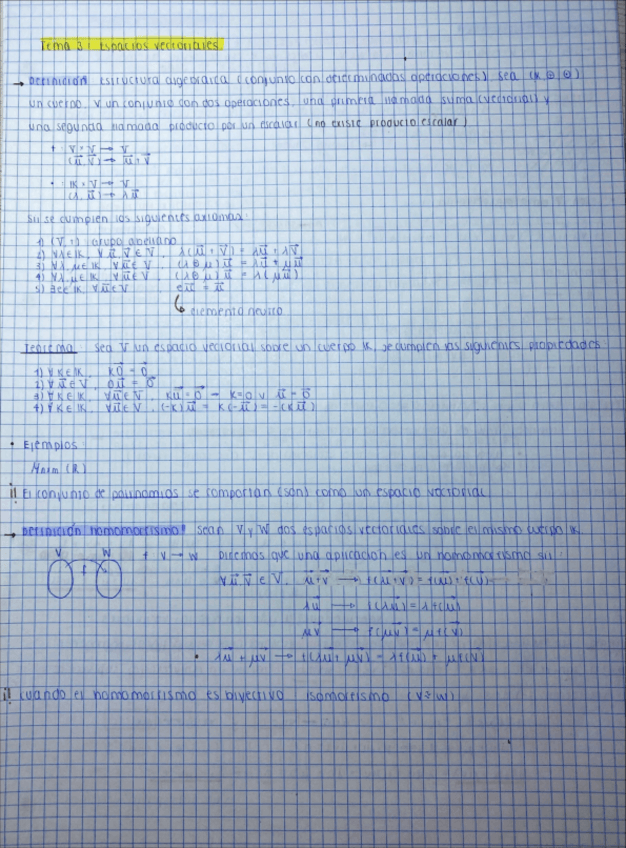 Tema 3: Espacios vectoriales
→ Definición estructura algebraica (conjunto con determinadas operaciones) Sea (K ⊕ ⊙)
un cuerpo, V un conjunto con dos operaciones, una primera llamada suma (vectorial) y
una segunda llamada producto por un escalar (no existe producto escalar)
+ V×V → V
(u⃗ v⃗) → u⃗+v⃗
· K×V → V
(λ, u⃗) → λu⃗
Sii se cumplen los siguientes axiomas:
1) (V,+) grupo abeliano
2) ∀λ∈K, ∀u⃗,v⃗∈V, λ(u⃗+v⃗) = λu⃗+λv⃗
3) ∀λ,μ∈K, ∀u⃗∈V, (λ⊕μ)u⃗ = λu⃗+μu⃗
4) ∀λ,μ∈K, ∀u⃗∈V, (λ⊙μ)u⃗ = λ(μu⃗)
5) ∃e∈K, ∀u⃗∈V eu⃗ = u⃗
elemento neutro
Teorema: Sea V un espacio vectorial sobre un cuerpo K, se cumplen las siguientes propiedades
1) ∀K∈K, K0⃗ = 0⃗
2) ∀u⃗∈V, 0u⃗ = 0⃗
3) ∀K∈K, ∀u⃗∈V, Ku⃗=0⃗ → K=0 v u⃗=0⃗
4) ∀K∈K, ∀u⃗∈V, (-K)u⃗ = K(-u⃗) = -(Ku⃗)
• Ejemplos:
Mnxm (R)
¡! El conjunto de polinomios se comportan (son) como un espacio vectorial
→ Definición homomorfismo: Sean V y W dos espacios vectoriales sobre el mismo cuerpo K
V W f V → W Diremos que una aplicación es un homomorfismo sii:
f
∀u⃗ v⃗ ∈ V, u⃗+v⃗ → f(u⃗+v⃗) = f(u⃗)+f(v⃗)
λu⃗ → f(λu⃗) = λf(u⃗)
μv⃗ → f(μv⃗) = μf(v⃗)
• λu⃗+μv⃗ → f(λu⃗+μv⃗) = λf(u⃗)+μf(v⃗)
¡! cuando el homomorfismo es biyectivo isomorfismo (V≅W)